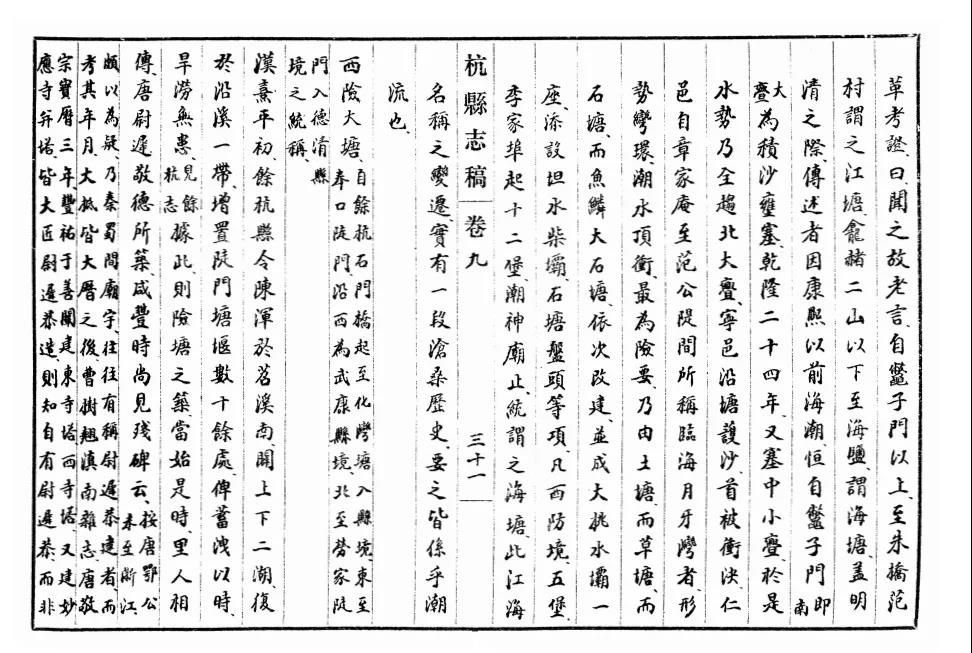 草考證曰聞之故老言自鼈子門以上至朱橋范
村謂之江塘龕赭二山以下至海鹽謂海塘蓋明
清之際傳述者因康熙以前海潮恒自鼈子門即南
大亹為積沙壅塞乾隆二十四年又塞中小亹於是
水勢乃全趨北大亹寧邑沿塘護沙首被衝決仁
邑自章家庵至范公隄間所稱臨海月牙灣者形
勢彎環潮水頂衝最為險要乃由土塘而草塘而
石塘而魚鱗大石塘依次改建並成大挑水壩一
座添設坦水柴壩石塘盤頭等項凡西防境五堡
李家埠起十二堡潮神廟止統謂之海塘此江海
名稱之變遷實有一段滄桑歷史要之皆係乎潮
流也
杭縣志稿 卷九 三十一
西險大塘自餘杭石門橋起至化灣塘入縣境東至
奉口陡門沿西為武康縣境北至勞家陡
門入德清縣
境之統稱
漢熹平初餘杭縣令陳渾於苕溪南開上下二湖復
於沿溪一帶增置陡門塘堰數十餘處俾蓄洩以時
旱澇無患見餘杭志據此則險塘之築當始是時里人相
傳唐尉遲敬德所築咸豐時尚見殘碑云按唐鄂公
未至浙江
頗以為疑乃秦蜀間廟宇往往有稱尉遲恭建者而
考其年月大抵皆大曆之後曹樹翹滇南雜志唐敬
宗寶曆三年豐祐于善闡建東寺塔西寺塔又建妙
應寺并塔皆大匠尉遲恭造則知自有尉遲恭而非